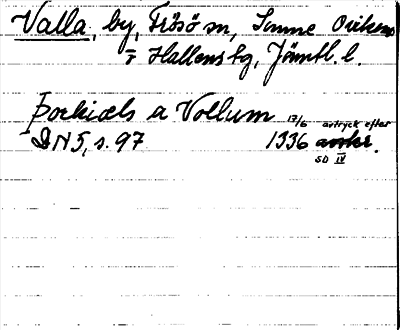 Valla, by, Frösö sn, Sunne
o Hallens tg, Jämtl. l.
Þorkiæls a Vollum 13/6 avtryck efter
DN 5, s. 97 1336
SD IV